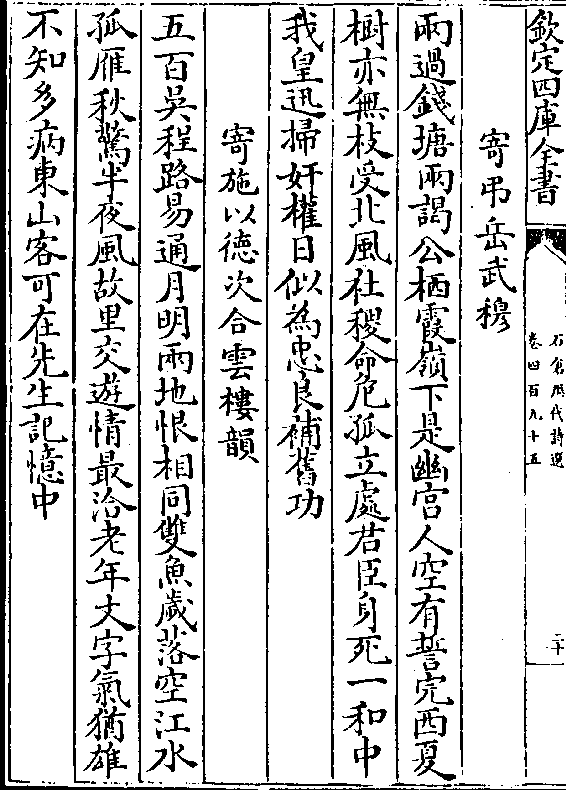 欽定四庫全書
石倉歷代詩選
卷四百九十五
二十
寄弔岳武穆
兩過錢塘兩謁公栖霞嶺下是幽宮人空有誓完西夏
樹亦無枝受北風社稷命危孤立處君臣身死一和中
我皇迅掃奸權日似為忠良補舊功
寄施以德次合雲樓韻
五百吳程路易通月明兩地恨相同雙魚歲落空江水
孤雁秋驚半夜風故里交遊情最洽老年文字氣猶雄
不知多病東山客可在先生記憶中